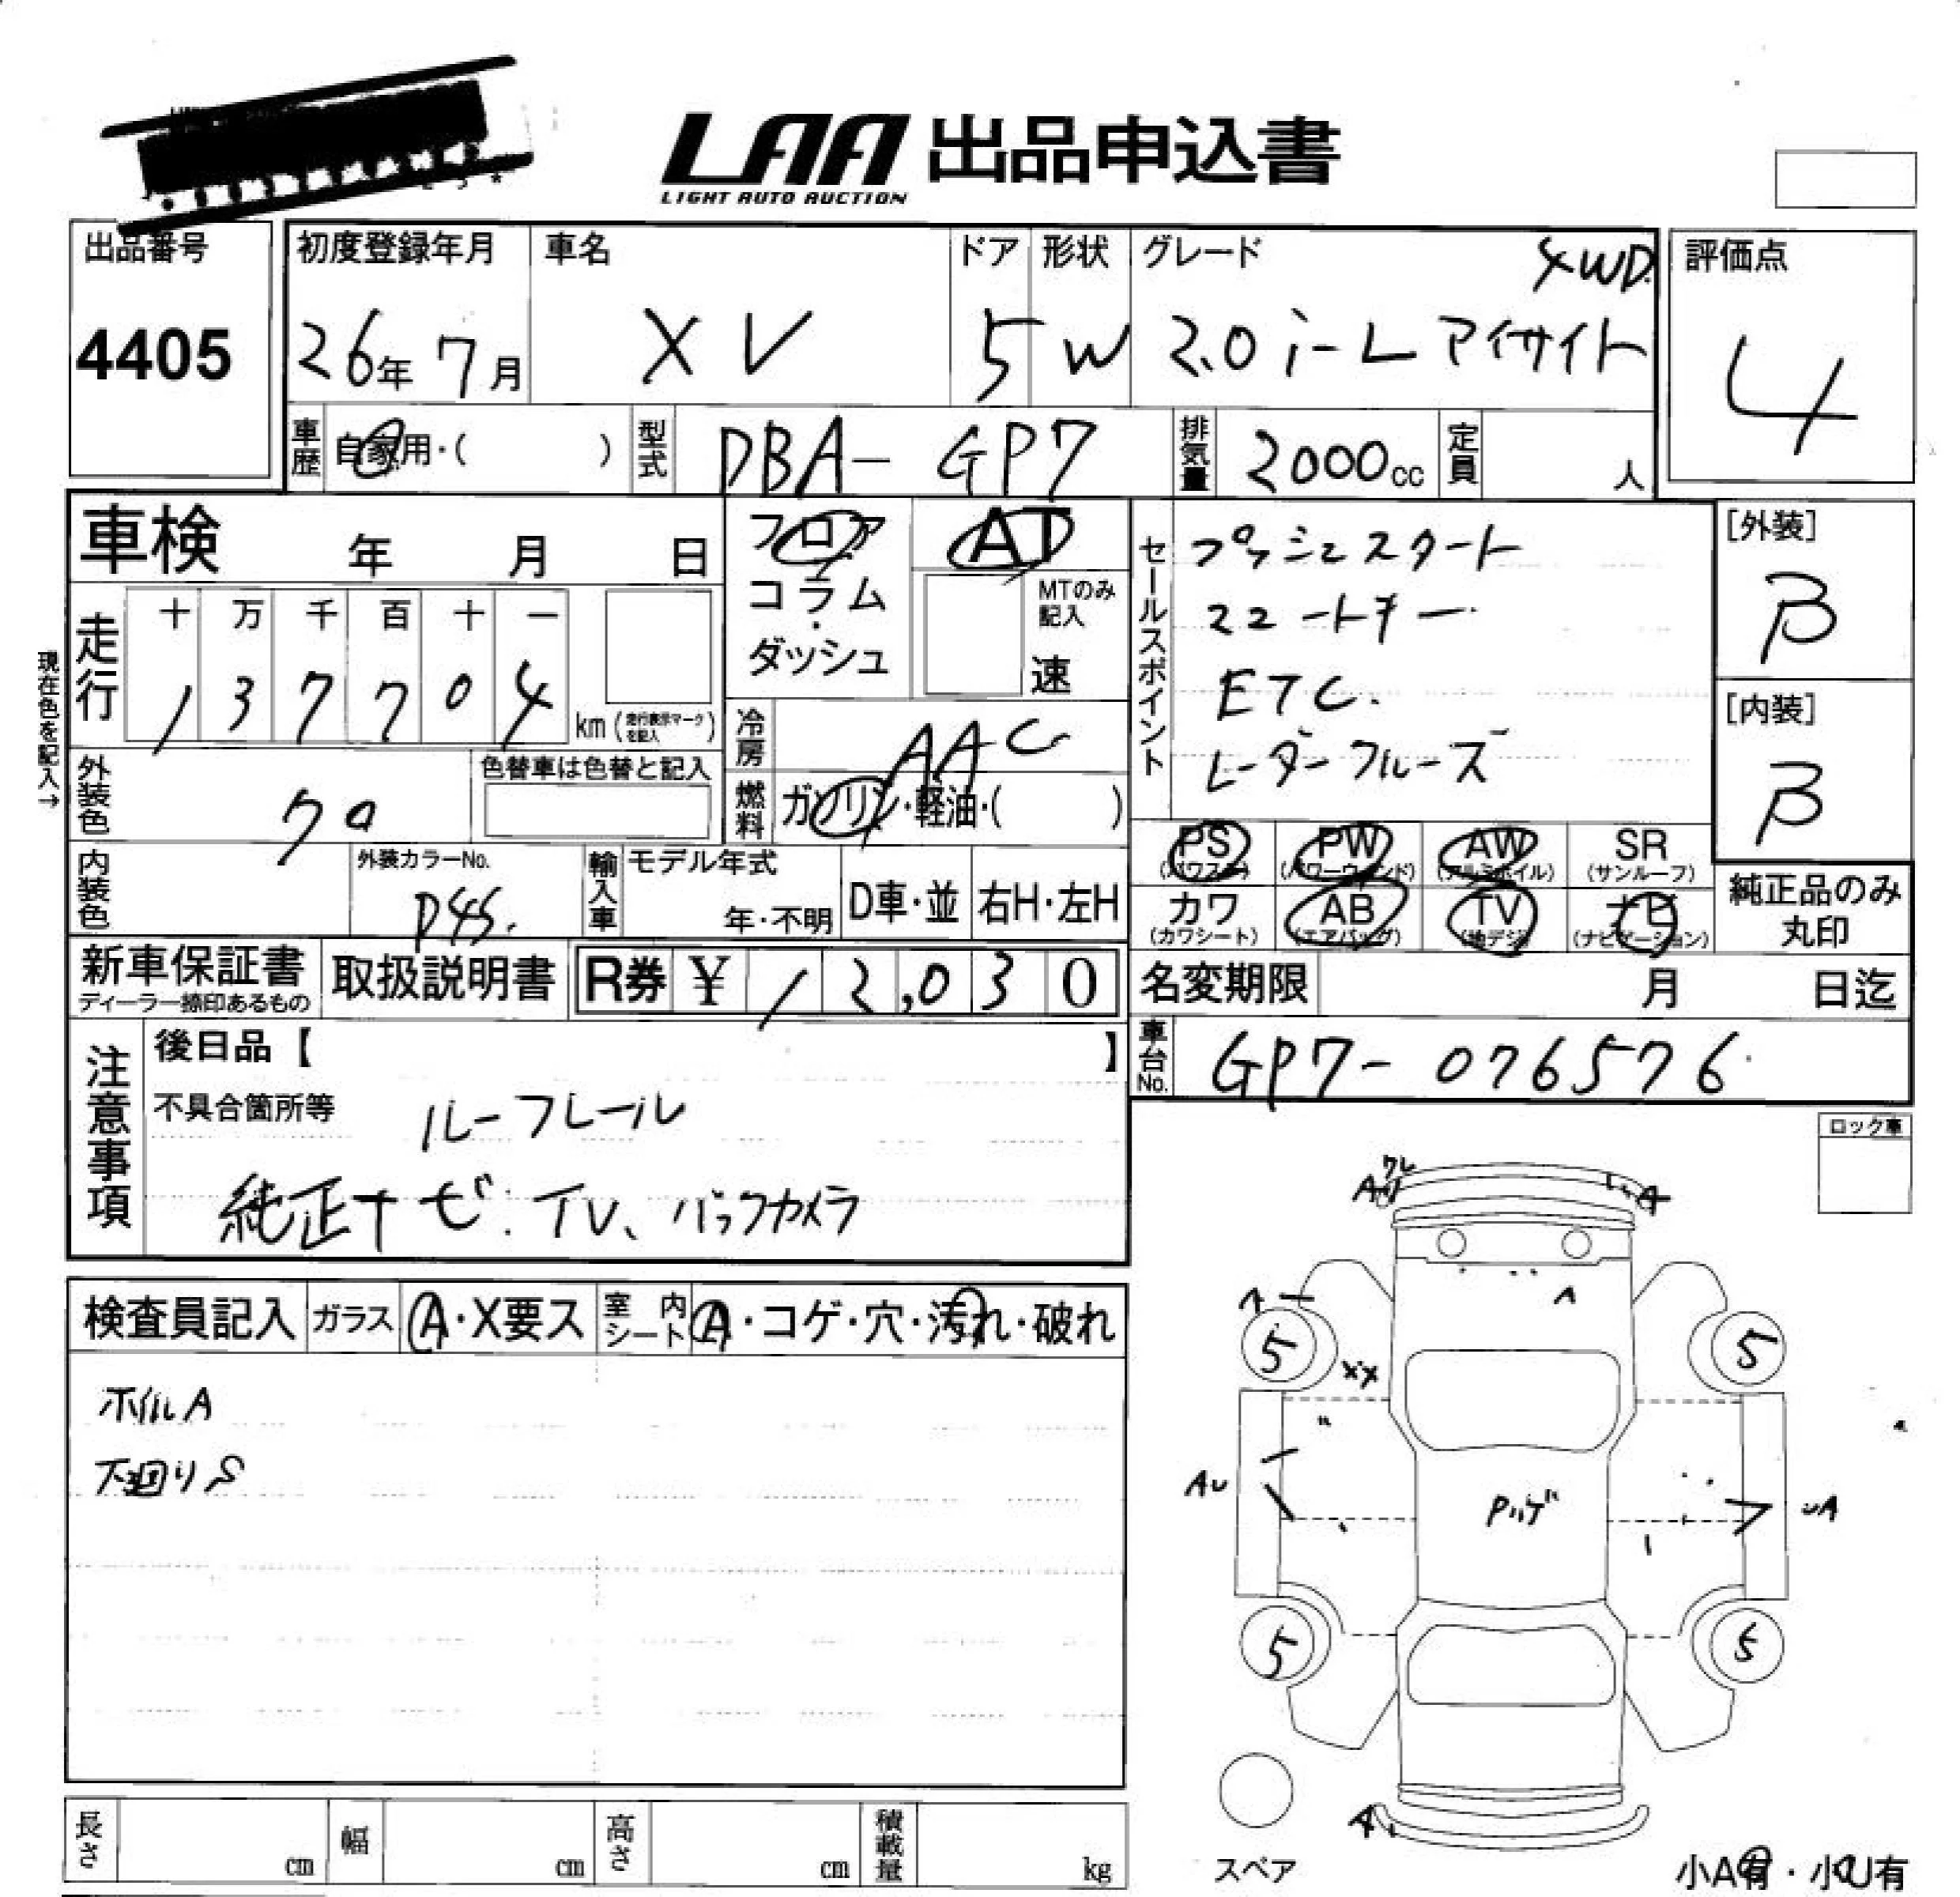 LAA 出品申込書
LIGHT AUTO AUCTION
出品番号
4405
初度登録年月
26年 7月
車名
XV
ドア
5
形状
W
グレード
4WD
2.0i-L アイサイト
評価点
4
車歴
自家用・( )
型式
DBA-GP7
排気量
2000cc
定員
人
車検 年 月 日
フロア
コラム・
ダッシュ
AT
MTのみ
記入
速
セールスポイント
プッシュスタート
スマートキー
ETC.
レーダークルーズ
[外装]
B
[内装]
B
現在色を記入→
走行
十 万 千 百 十 一
1 3 7 7 0 4
km (走行表示マークを記入)
冷房
AAC
燃料
ガソリン・軽油・( )
外装色
クロ
色替車は色替と記入
内装色
外装カラーNo.
D4S.
輸入車
モデル年式
年・不明
D車・並
右H・左H
PS
(パワステ)
PW
(パワーウィンド)
AW
(アルミホイル)
SR
(サンルーフ)
カワ
(カワシート)
AB
(エアバッグ)
TV
(地デジ)
ナビ
(ナビゲーション)
純正品のみ
丸印
新車保証書
ディーラー捺印あるもの
取扱説明書
R券 ¥ 12,030
名変期限 月 日迄
車台No.
GP7-076576
注意事項
後日品【 】
不具合箇所等
ルーフレール
純正ナビ. TV、バックカメラ
ロック車
検査員記入
ガラス
A・X要ス
室内シート
A・コゲ・穴・汚れ・破れ
ホイルA
下廻りS
A
A
A
A
5
5
XX
AU
Pハゲ
UA
5
5
A
スペア
小A有・小U有
長さ cm
幅 cm
高さ cm
積載量 kg